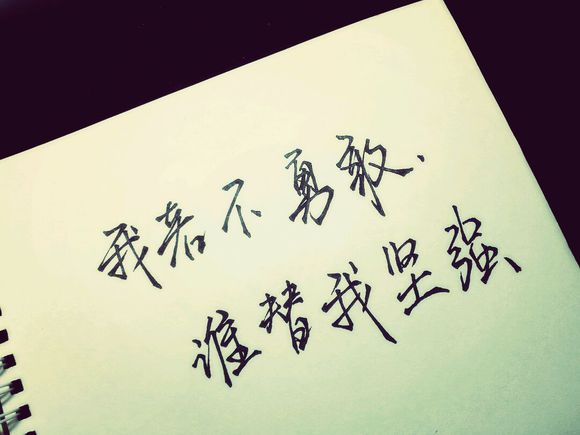 我若不勇敢、
谁替我坚强